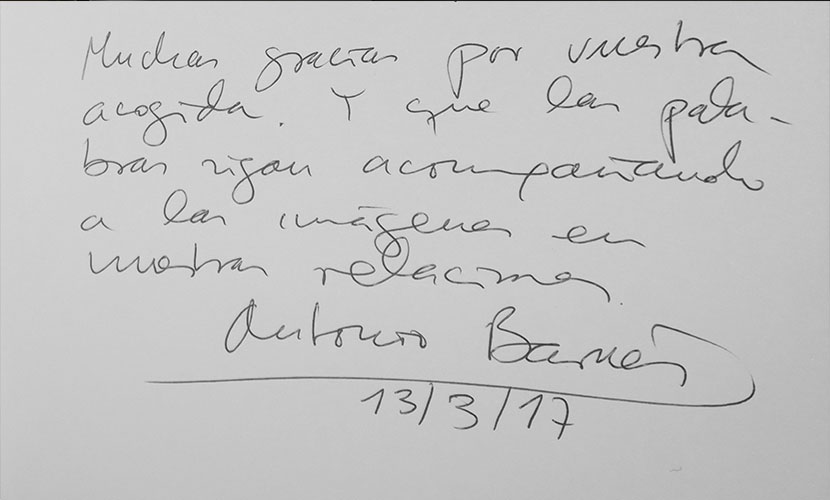 Muchas gracias por vuestra
acogida. Y que las pala-
bras sigan acompañando
a las imágenes en
nuestras relaciones.
Antonio Barnés
13/3/17